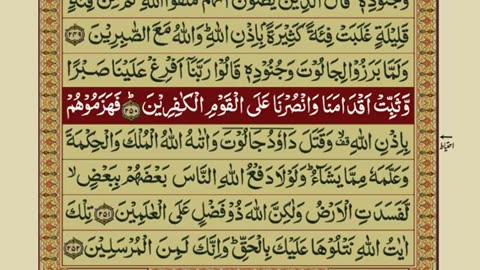 وَجُنُوْدِهٖ ؕ قَالَ الَّذِيْنَ يَظُنُّوْنَ اَنَّهُمْ مُّلٰقُوا اللّٰهِ ۙ كَمْ مِّنْ فِئَةٍ
قَلِيْلَةٍ غَلَبَتْ فِئَةً كَثِيْرَةًۢ بِاِذْنِ اللّٰهِ ؕ وَاللّٰهُ مَعَ الصّٰبِرِيْنَ ﴿۲۴۹﴾
وَلَمَّا بَرَزُوْا لِجَالُوْتَ وَجُنُوْدِهٖ قَالُوْا رَبَّنَآ اَفْرِغْ عَلَيْنَا صَبْرًا
وَّثَبِّتْ اَقْدَامَنَا وَانْصُرْنَا عَلَى الْقَوْمِ الْكٰفِرِيْنَ ؕ ﴿۲۵۰﴾ فَهَزَمُوْهُمْ
بِاِذْنِ اللّٰهِ ۙ قف وَقَتَلَ دَاوٗدُ جَالُوْتَ وَاٰتٰىهُ اللّٰهُ الْمُلْكَ وَالْحِكْمَةَ
احتیاط
وَعَلَّمَهٗ مِمَّا يَشَآءُ ؕ وَلَوْلَا دَفْعُ اللّٰهِ النَّاسَ بَعْضَهُمْ بِبَعْضٍ ۙ لا
لَّفَسَدَتِ الْاَرْضُ وَلٰكِنَّ اللّٰهَ ذُوْ فَضْلٍ عَلَى الْعٰلَمِيْنَ ﴿۲۵۱﴾ تِلْكَ
اٰيٰتُ اللّٰهِ نَتْلُوْهَا عَلَيْكَ بِالْحَقِّ ؕ وَاِنَّكَ لَمِنَ الْمُرْسَلِيْنَ ﴿۲۵۲﴾